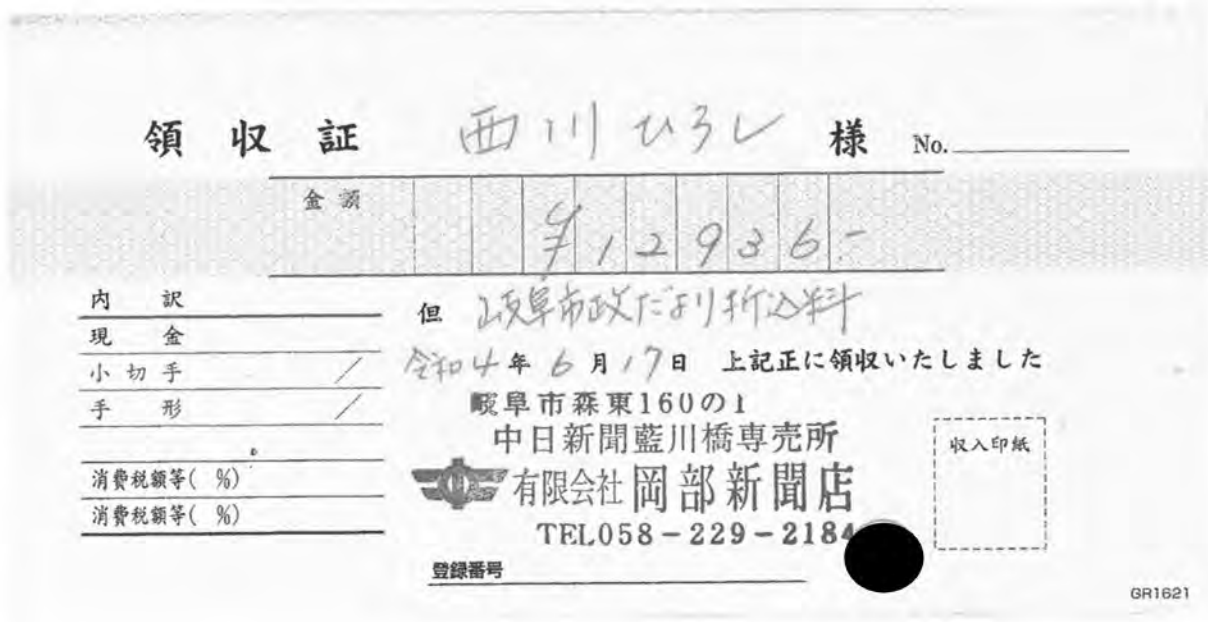 領収証 西川ひろし 様 No.
金額 ¥12936-
内訳
現金
小切手 /
手形 /
消費税額等( %)
消費税額等( %)
但 岐阜市政だより折込料
令和4年6月17日 上記正に領収いたしました
岐阜市森東160の1
中日新聞藍川橋専売所
有限会社 岡部新聞店
TEL058-229-2184
収入印紙
登録番号
GR1621